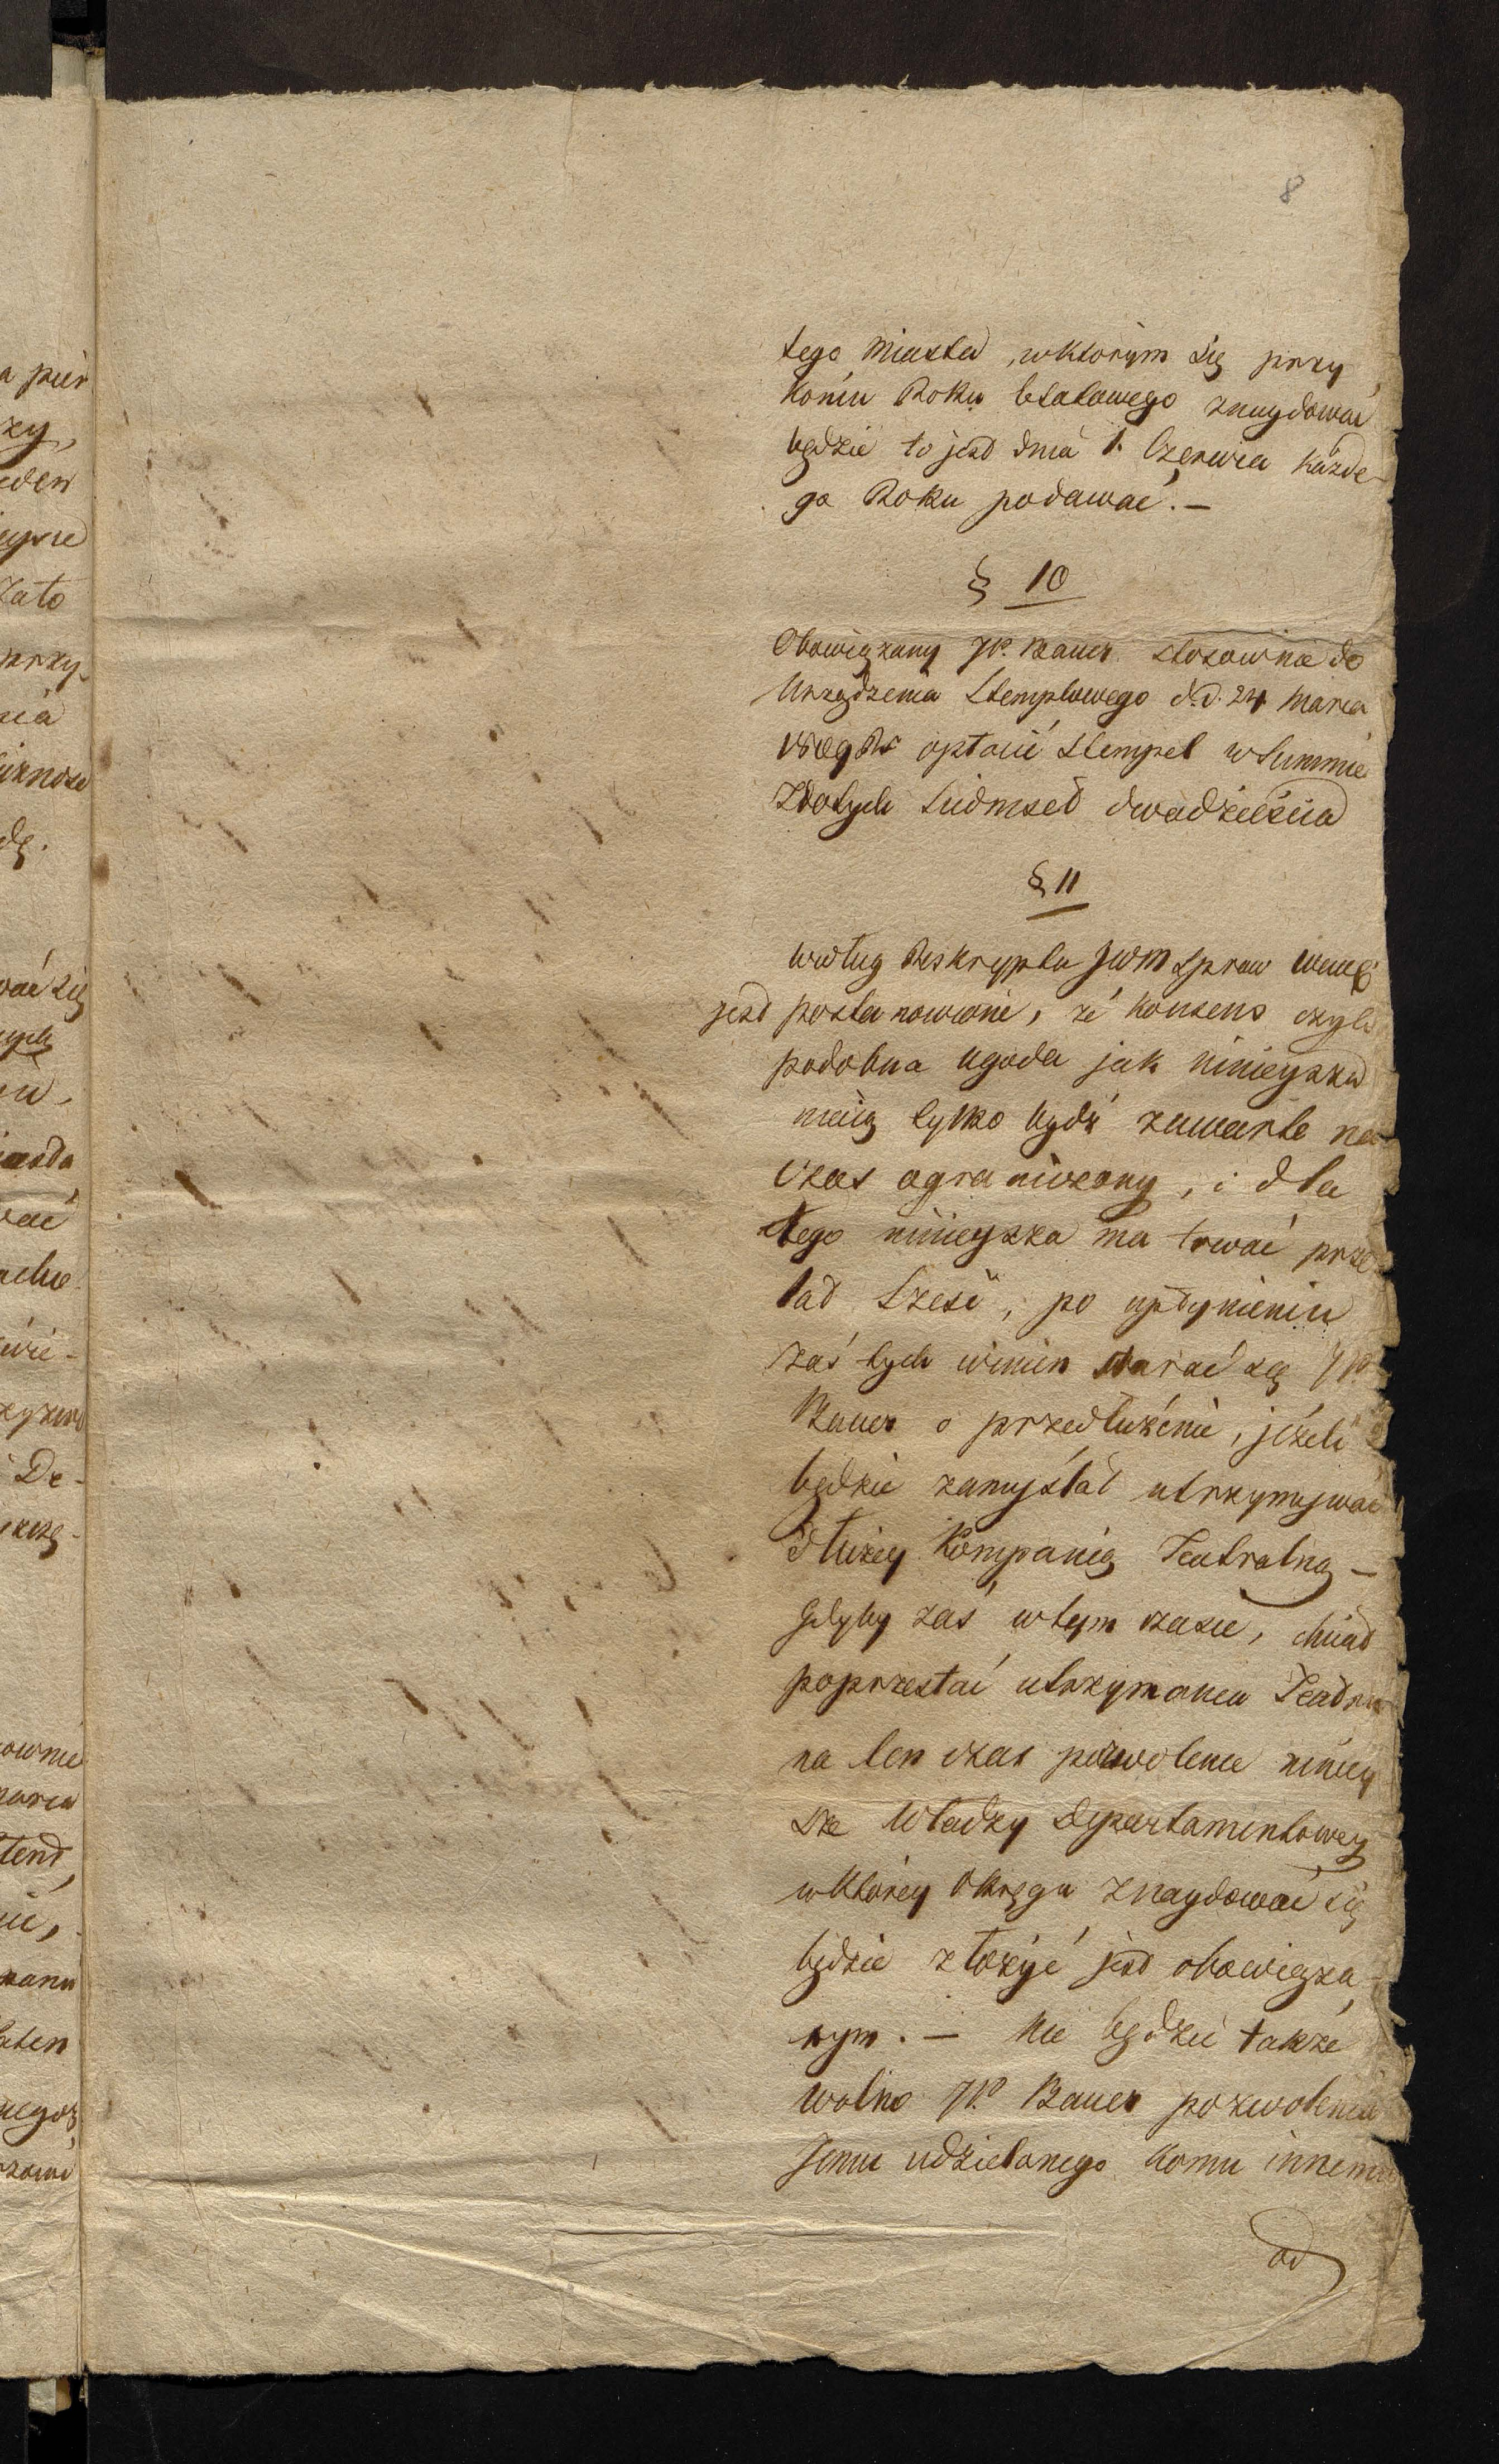 8
tego Miasta, w którym się przy
końcu Roku Etatowego znaydować
będzie to jest dnia 1. Czerwca każde-
go Roku podawać. —
§ 10
Obowiązany JP. Bauer stosownie do
Urządzenia Stemplowego d.d. 24 Marca
opłacić Stempel w Summie
Złotych Siedmset dwadzieścia
§ 11
według Reskryptu JWM Spraw Wewę
jest postanowione, że konsens czyli
podobna Ugoda jak ninieysza
maią tylko bydź zawarte na
czas ograniczony, i dla
tego ninieysza ma trwać prze
lat Sześć, po upłynieniu
zaś tych winien starać się JP.
Bauer o przedłużenie, jeżeli
będzie zamyślał utrzymywać
dłużey Kompanią Teatralną —
Gdyby zaś w tym czasie, chciał
poprzestać utrzymania Teatru
na ten czas pozwolenie niniey
sze Władzy Departamentowey
w którey Okręgu znaydować się
będzie złożyć jest obowiąza-
nym. — Nie będzie także
wolno JP. Bauer pozwolenia
Jemu udzielonego komu innemu
od
a pier
zy,
eden
zato
przy-
nia
dę.
wać się
nych
wać
wie-
De-
ownie
marca
tend,